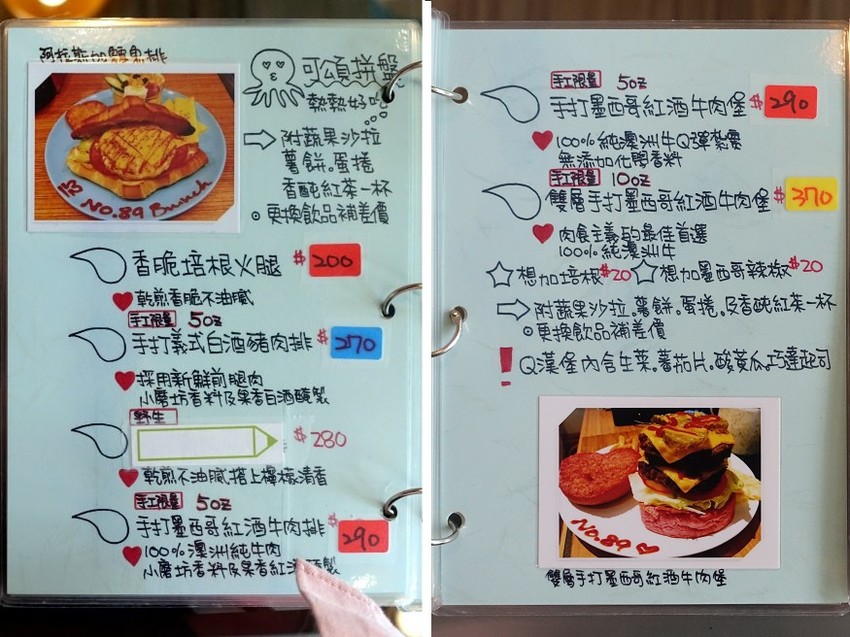 阿拉斯加鱈魚排
No.89 Brunch
可頌拼盤
熱熱好吃
附蔬果沙拉
薯餅。蛋捲
香醇紅茶一杯
更換飲品補差價
香脆培根火腿 $200
乾煎香脆不油膩
手工限量 5oz
手打義式白酒豬肉排 $270
採用新鮮前腿肉
小磨坊香料及果香白酒醃製
野生
$280
乾煎不油膩.搭上檸檬清香
手工限量 5oz
手打墨西哥紅酒牛肉排 $290
100%澳洲純牛肉
小磨坊香料及果香紅酒醃製
手工限量 5oz
手打墨西哥紅酒牛肉堡 $290
100%純澳洲牛Q彈紮實
無添加化開香料
手工限量 10oz
雙層手打墨西哥紅酒牛肉堡 $370
肉食主義的最佳首選
100%純澳洲牛
想加培根$20 想加墨西哥辣椒$20
附蔬果沙拉.薯餅.蛋捲.及香醇紅茶一杯
更換飲品補差價
Q漢堡內含生菜.蕃茄片.酸黃瓜.巧達起司
No.89
雙層手打墨西哥紅酒牛肉堡